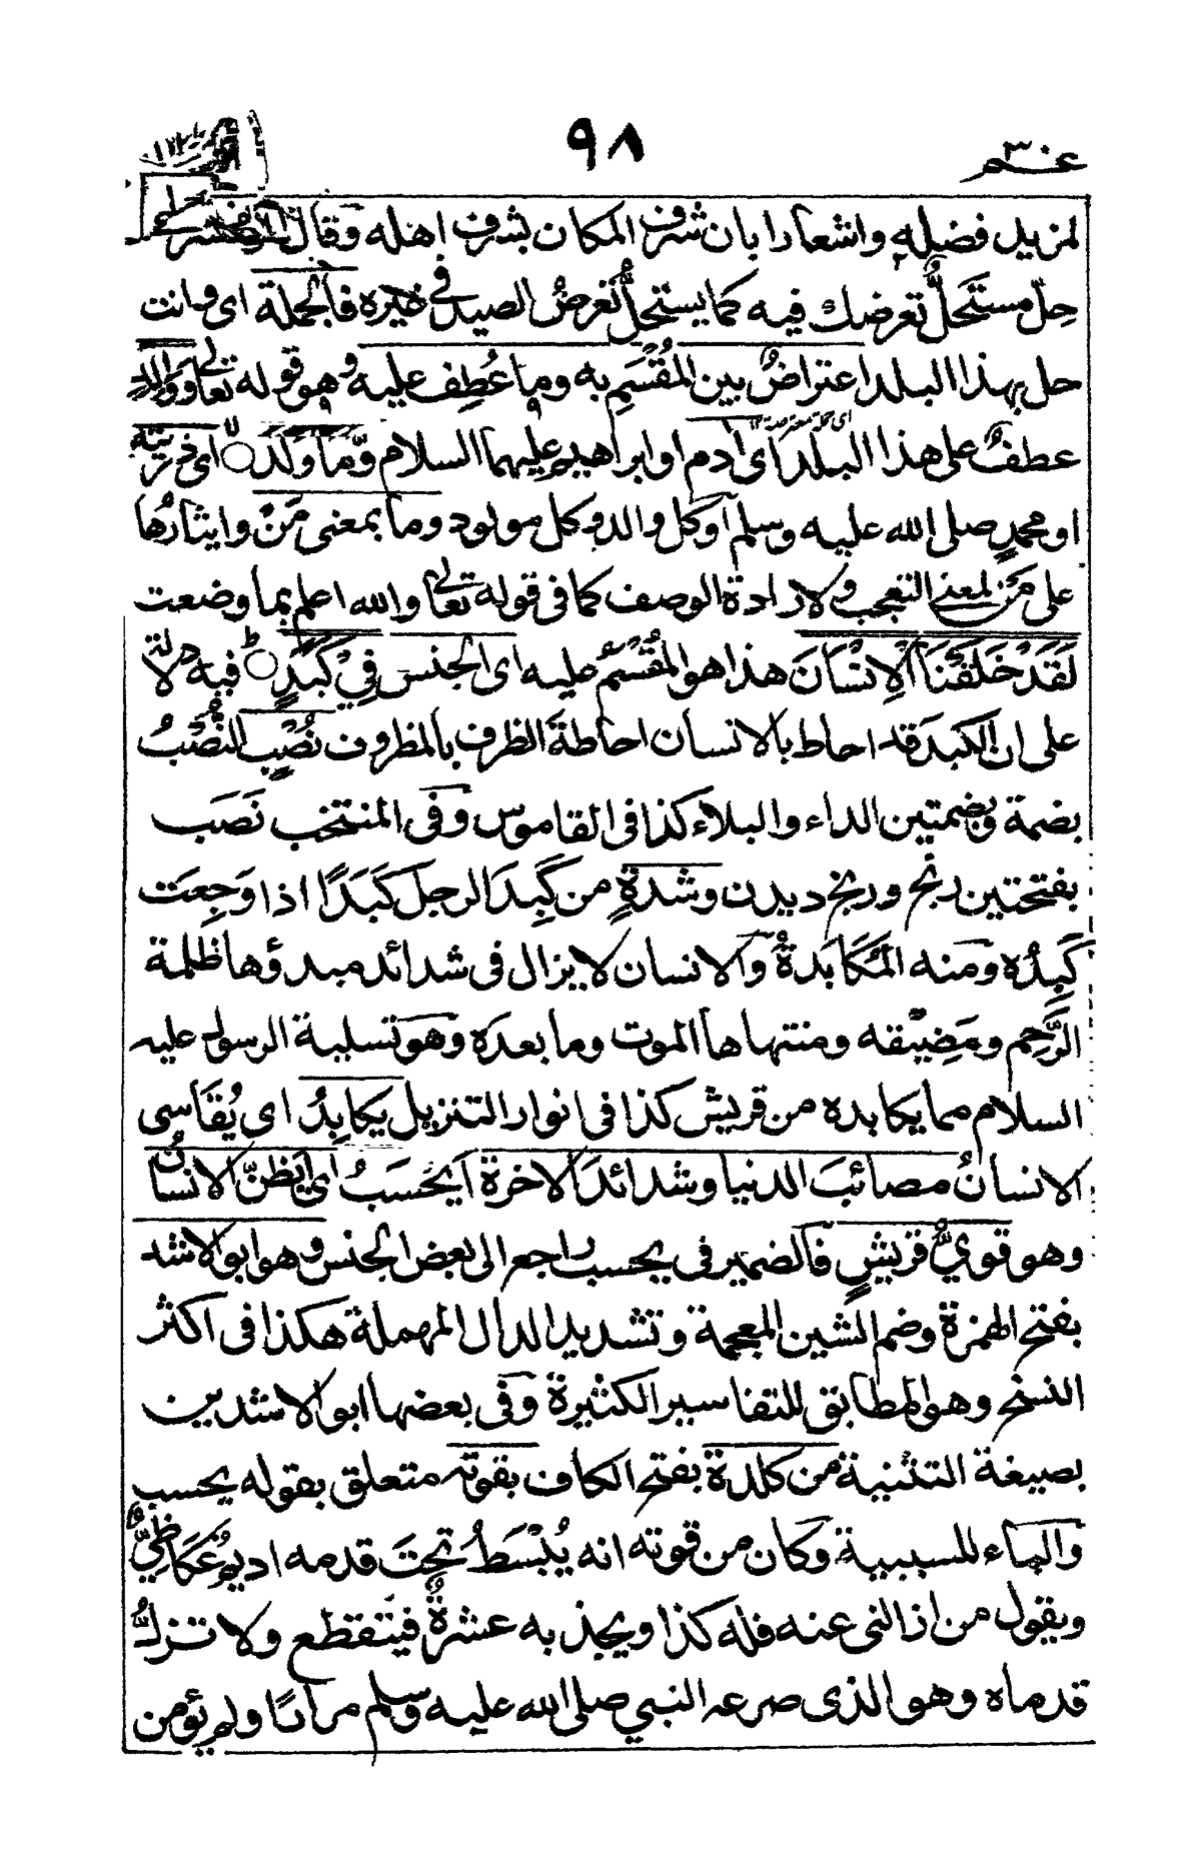 عم ٣٠
٩٨
لمزيد فضله واشعارا بان شرف المكان بشرف اهله وقال
حِلّ مستَحَلٌّ تعرضك فيه كما يستحلُّ تعرضُ الصيد في غيره فالجملة اى وانت
حل بهذا البلد اعتراضٌ بين المُقْسَمِ به وما عُطِف عليه وهو قوله تعالى ووالدٍ
اى جملة معترضة
عطفٌ على هذا البلد اى آدم او ابراهيم عليهما السلام وَّمَا وَلَدَ ○ لا اى ذريته
او محمدٍ صلى الله عليه وسلم او كل والد وكل مولود وما بمعنى مَنْ وايثارُها
على مَنْ لمعنى التعجب ولارادة الوصف كما فى قوله تعالى والله اعلم بما وضعت
لَقَدْ خَلَقْنَا الْاِنْسَانَ هذا هو المُقْسَمُ عليه اى الجنس فِيْ كَبَدٍ ○ ط فيه دلالة
على ان الكبد قد احاط بالانسان احاطةَ الظرف بالمظروف نُصُبٍ النُّصُبُ
بضمة وبضمتين الداء والبلاء كذا فى القاموس وفى المنتخب نَصَب
بفتحتين رنج ورنج ديدن وشدةٍ من كَبِدَ الرجل كَبَدًا اذا وَجِعَت
كَبِدُه ومنه المُكَابَدةُ والانسان لا يزال فى شدائد مبدؤها ظلمة
الرَّحِم ومَضِيقه ومنتهاها الموت وما بعده وهو تسلية الرسول عليه
السلام مما يكابده من قريش كذا فى انوار التنزيل يكابِدُ اى يُقَاسى
الانسانُ مصائبَ الدنيا وشدائدَ الاخرة اَيَحْسَبُ اى اَيَظنّ الانسانُ
وهو قويُّ قريشٍ فالضمير فى يحسب راجع الى بعض الجنس وهو ابو الاشد
بفتح الهمزة وضم الشين المعجمة وتشديد الدال المهملة هكذا فى اكثر
النسخ وهو المطابق للتفاسير الكثيرة وفى بعضها ابو الاشدين
بصيغة التثنية من كلدة بفتح الكاف بقوته متعلق بقوله يحسب
والباء للسببية وكان من قوته انه يُبْسَطُ تحتَ قدمه اديم عُكَاظِيٌّ
ويقول من ازالنى عنه فله كذا ويجذبه عشرةٌ فيتقطع ولا تزلُّ
قدماه وهو الذى صرعه النبي صلى الله عليه وسلم مرارًا ولم يؤمن